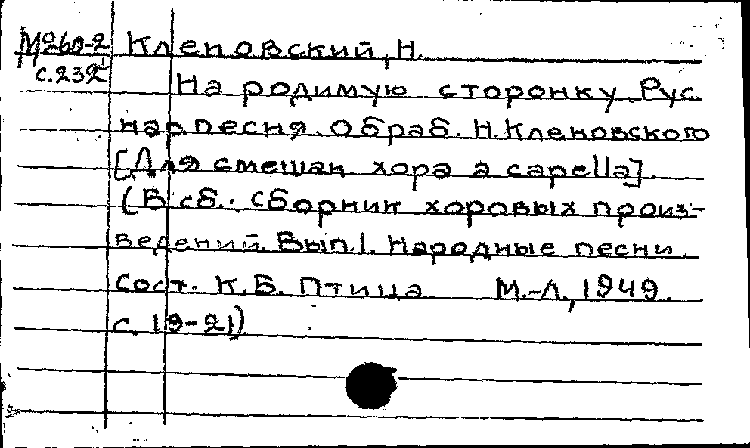 М260-2 Кленовский, Н.
с.232
На родимую сторонку. Рус.
нар песня. Обраб. Н. Кленовского
[Для смешан хора a capella].
(В сб.: Сборник хоровых произ-
ведений. Вып. 1. Народные песни.
Сост. К.Б. Птица М.-Л., 1949.
с. 19-21)